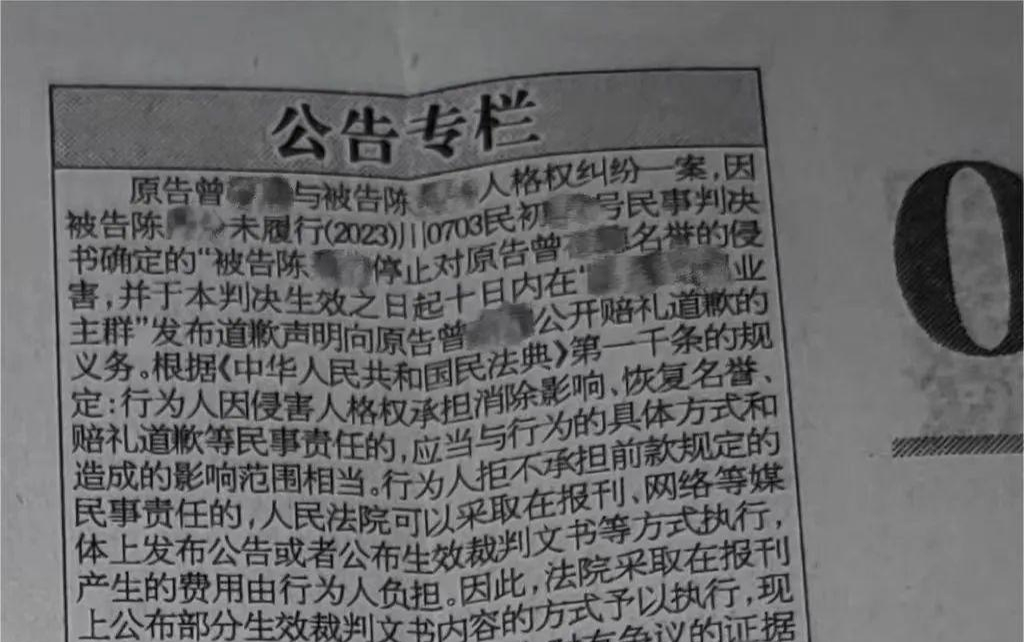 公告专栏
原告曾与被告陈人格权纠纷一案,因
被告陈未履行(2023)川0703民初号民事判决
书确定的“被告陈停止对原告曾名誉的侵
害,并于本判决生效之日起十日内在“业
主群”发布道歉声明向原告曾公开赔礼道歉的
义务。根据《中华人民共和国民法典》第一千条的规
定:行为人因侵害人格权承担消除影响、恢复名誉、
赔礼道歉等民事责任的,应当与行为的具体方式和
造成的影响范围相当。行为人拒不承担前款规定的
民事责任的,人民法院可以采取在报刊、网络等媒
体上发布公告或者公布生效裁判文书等方式执行,
产生的费用由行为人负担。因此,法院采取在报刊
上公布部分生效裁判文书内容的方式予以执行,现
有争议的证据
0